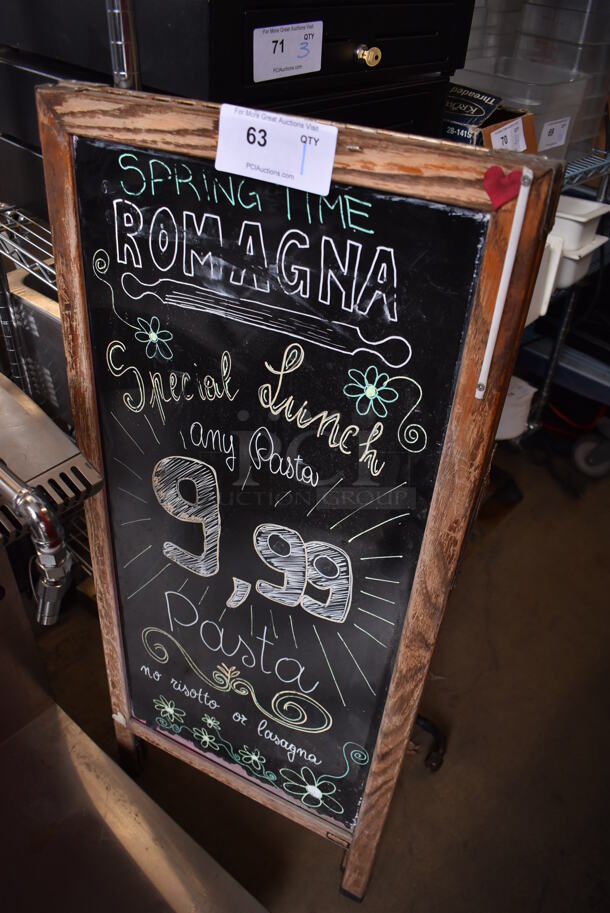 For More Great Auctions Visit
71 QTY
3
PCIAuctions.com
For More Great Auctions Visit
63 QTY
1
PCIAuctions.com
Threaded
28-141S
70
69
SPRING TIME
ROMAGNA
Special Lunch
any Pasta
9,99
Pasta
no risotto or lasagna
PCI
AUCTION GROUP